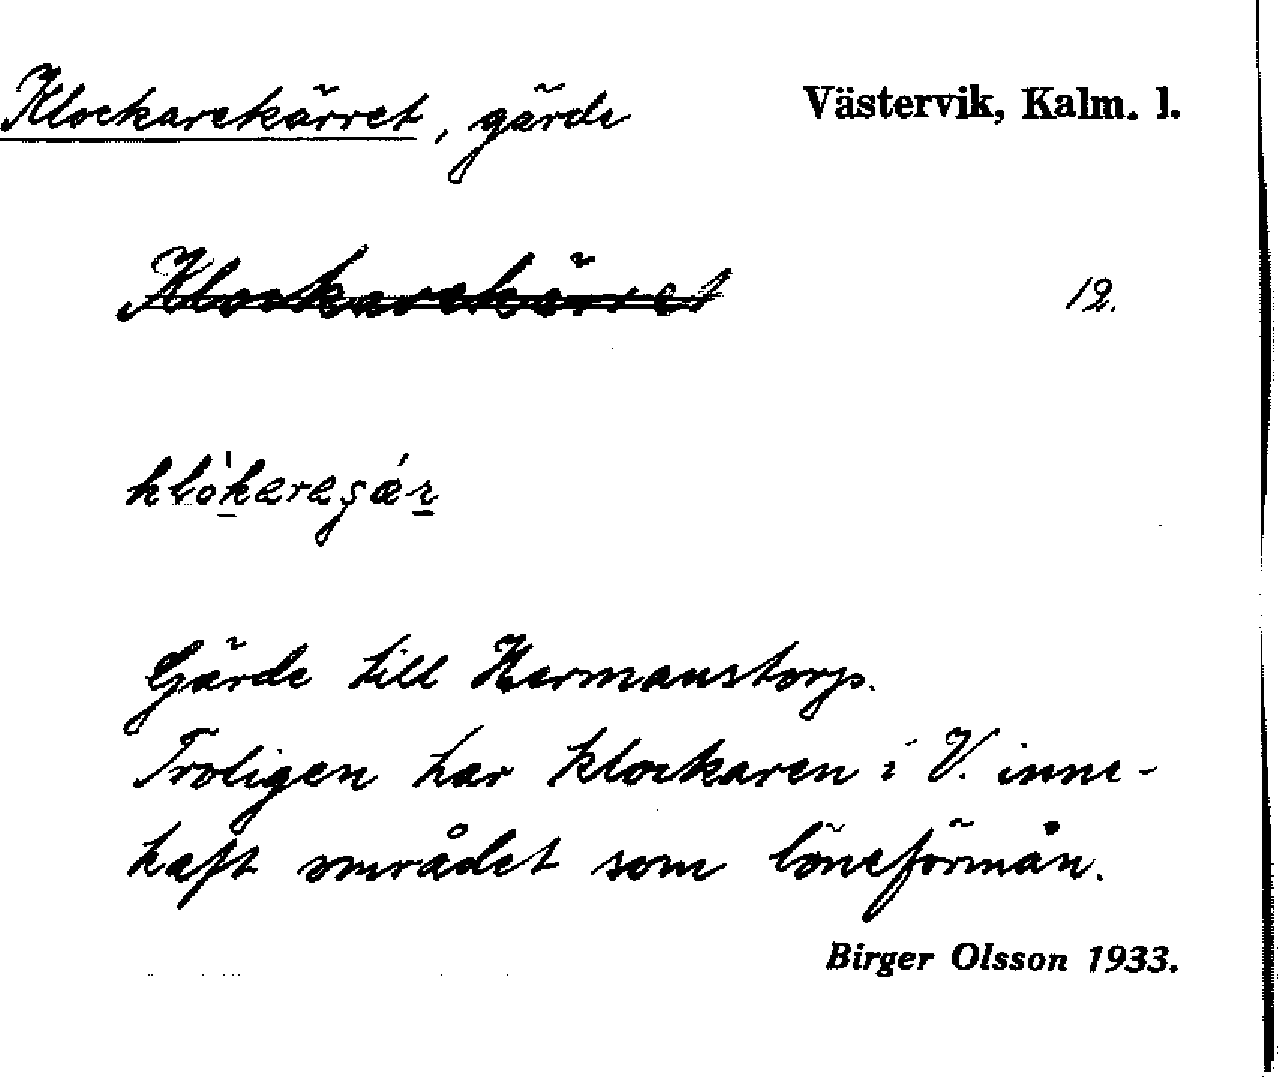 Klockarekärret, gärde
Västervik, Kalm. l.
Klockarekärret
12.
Gärde till Hermanstorp.
Troligen har klockaren i V. inne-
haft området som löneförmån.
Birger Olsson 1933.